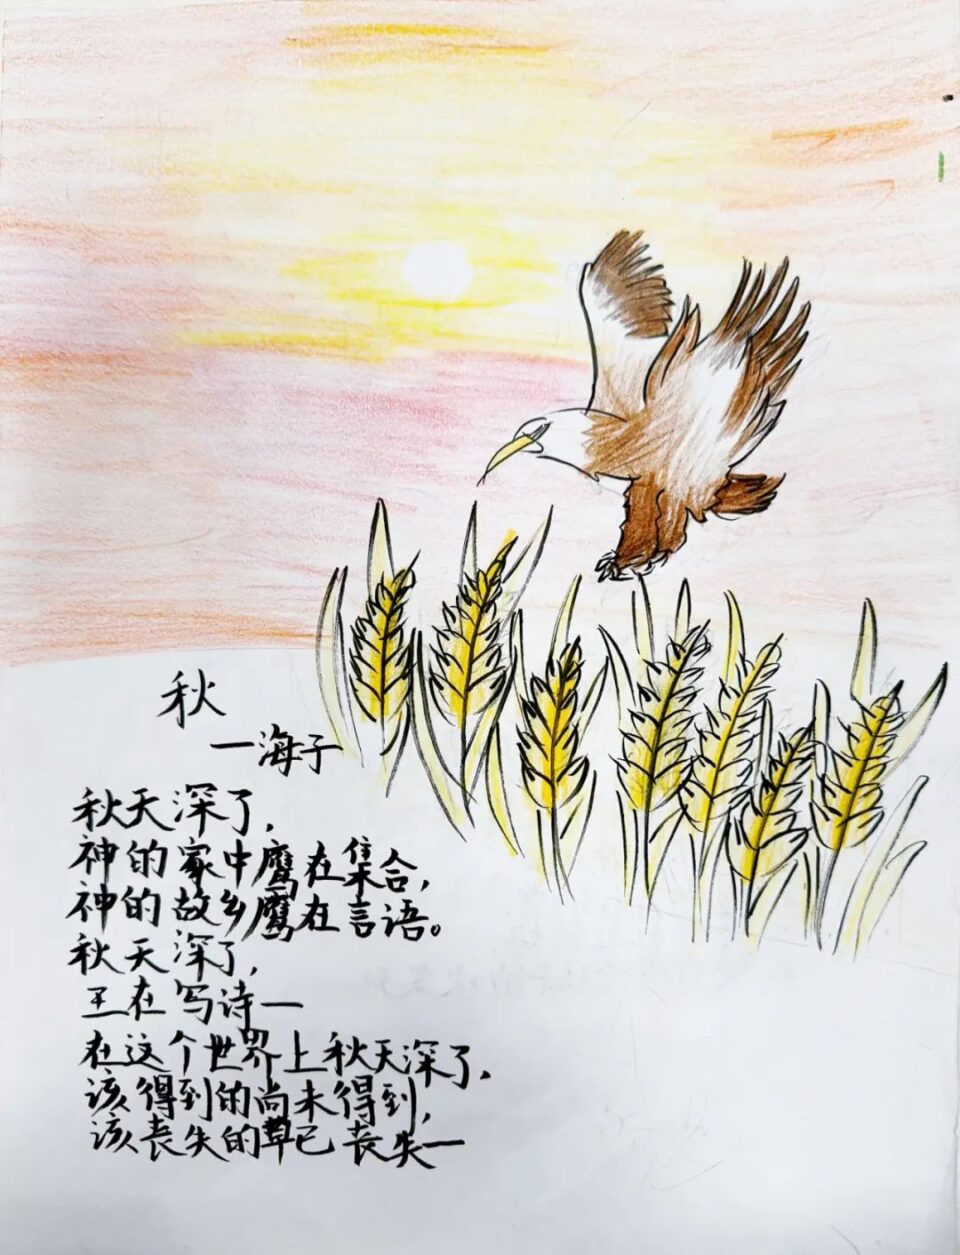 秋
一海子
秋天深了,
神的家中鹰在集合,
神的故乡鹰在言语。
秋天深了,
王在写诗一
在这个世界上秋天深了,
该得到的尚未得到,
该丧失的早已丧失一